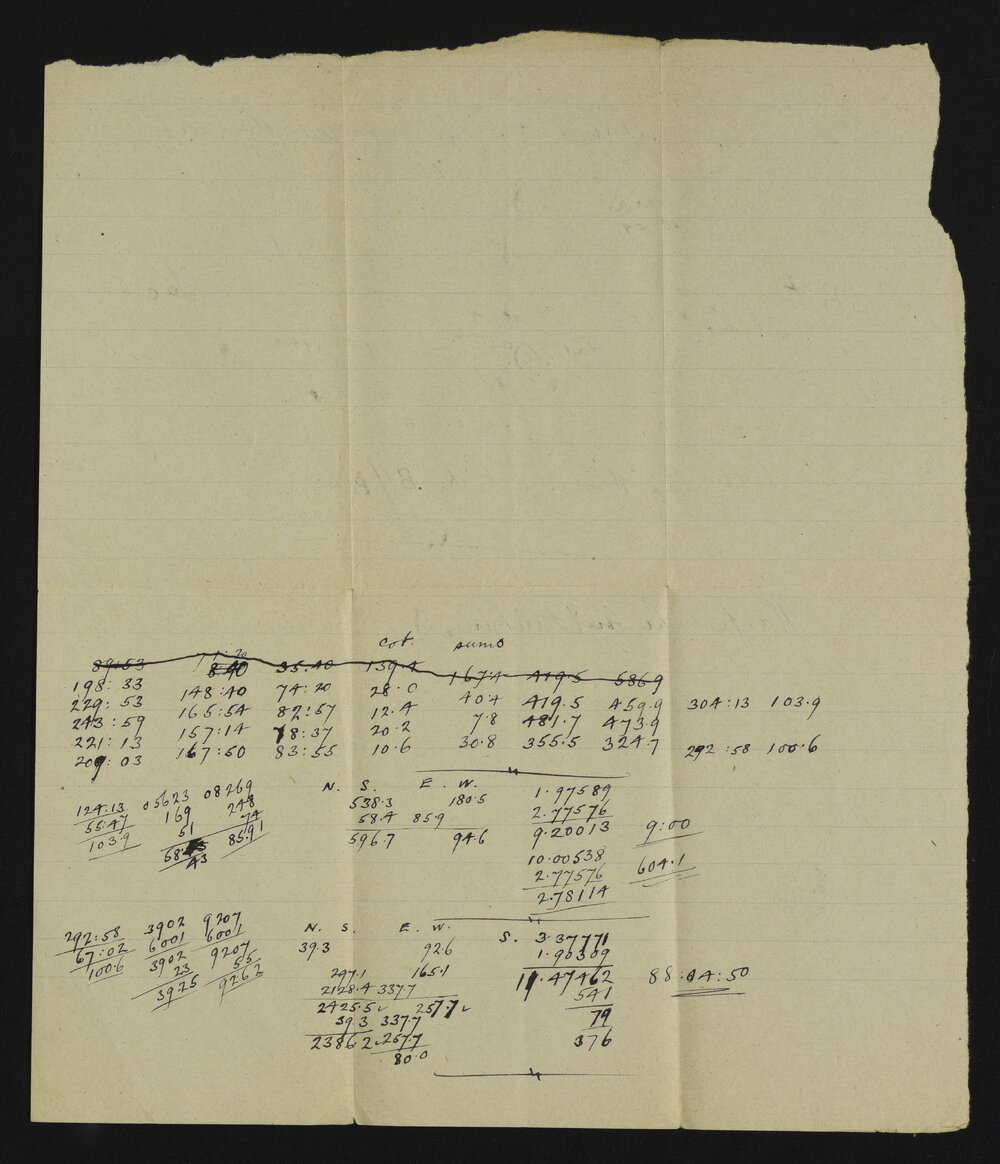 cot. sums
89:53 71:20 35:40 139.4 167.4 419.5 586.9
8:40
198:33 148:40 74:20 28.0 40.4 419.5 459.9 304:13 103.9
229:53 165:54 82:57 12.4 7.8 481.7 473.9
243:59 157:14 78:37 20.2 30.8 355.5 324.7 292:58 100.6
221:13 167:50 83:55 10.6
209:03
N. S. E. W.
124:13 05623 08269 538.3 180.5 1.97589
55:47 169 248 58.4 85.9 2.77576
103.9 51 74 596.7 94.6 9.20013 9:00
58 43 8591 10.00538 604.1
2.77576
2.78114
N. S. E. W.
292:58 3902 9207 39.3 92.6 S. 3.37771
67:02 6001 6001 297.1 165.1 1.90309
100.6 3902 9207 2128.4 337.7 11.47462 88:04:50
23 55 2425.5 257.7 541
3925 9262 39.3 337.7 79
2386.2 257.7 376
80.0